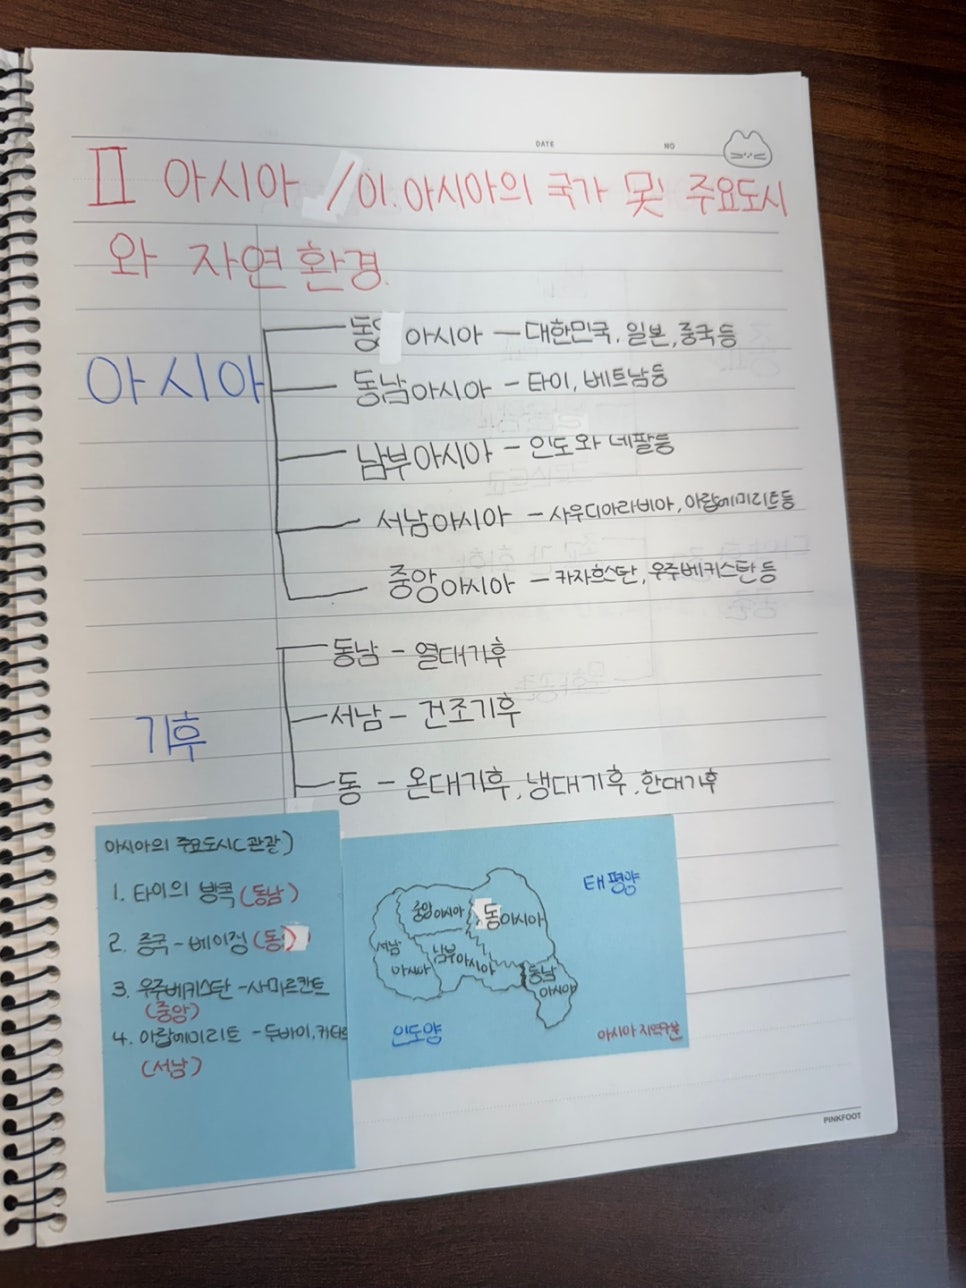 DATE
NO
Ⅱ 아시아 / 01. 아시아의 국가 및 주요도시
와 자연환경.
아시아
동 아시아 - 대한민국, 일본, 중국 등
동남아시아 - 타이, 베트남등
남부아시아 - 인도와 네팔등
서남아시아 - 사우디아라비아, 아랍에미리트등
중앙아시아 - 카자흐스탄, 우주베키스탄 등
기후
동남 - 열대기후
서남 - 건조기후
동 - 온대기후, 냉대기후, 한대기후
아시아의 주요도시(관광)
1. 타이의 방콕(동남)
2. 중국-베이징(동)
3. 우주베키스탄-사마르칸트
(중앙)
4. 아랍에미리트 - 두바이,
(서남)
태평양
중앙아시아
동아시아
서남
아시아
남부아시아
동남
아시아
인도양
아시아 지역구분
PINKFOOT